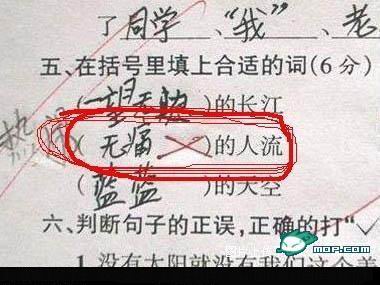 了同学、“我”、老
五、在括号里填上合适的词(6分)
(一望无)的长江
(无痛)的人流
(蓝蓝)的天空
六、判断句子的正误,正确的打“✓
1.没有太阳就没有我们这个美
mop.com